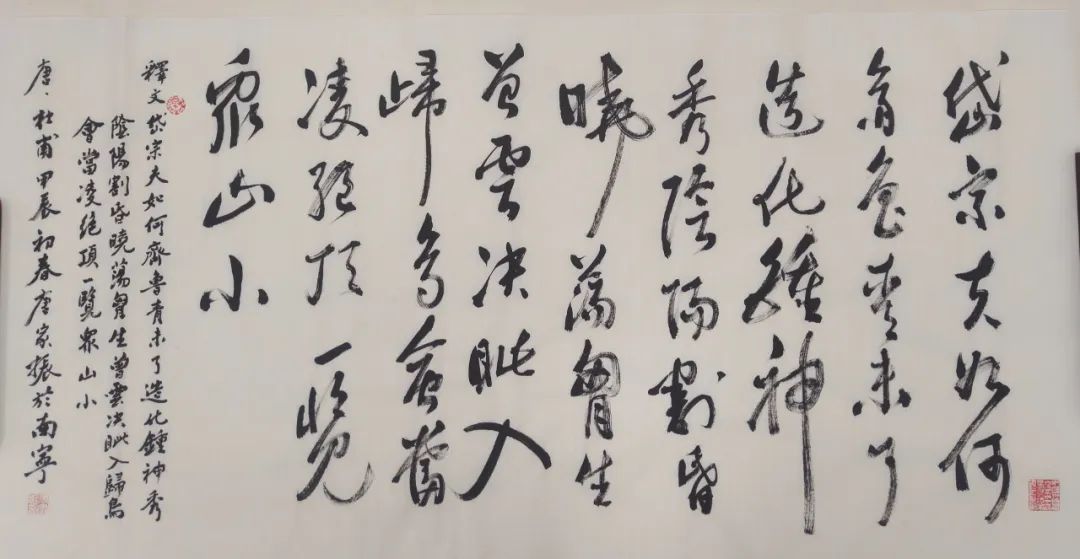 岱宗夫如何
齊魯青未了
造化鍾神
秀陰陽割昏
曉蕩胷生
曾雲决眦入
歸鳥會當
凌絕頂一覽
衆山小
釋文岱宗夫如何齊魯青未了造化鍾神秀
陰陽割昏曉蕩胷生曾雲决眦入歸鳥
會當凌絕頂一覽衆山小
唐、杜甫甲辰初春唐家振於南寧